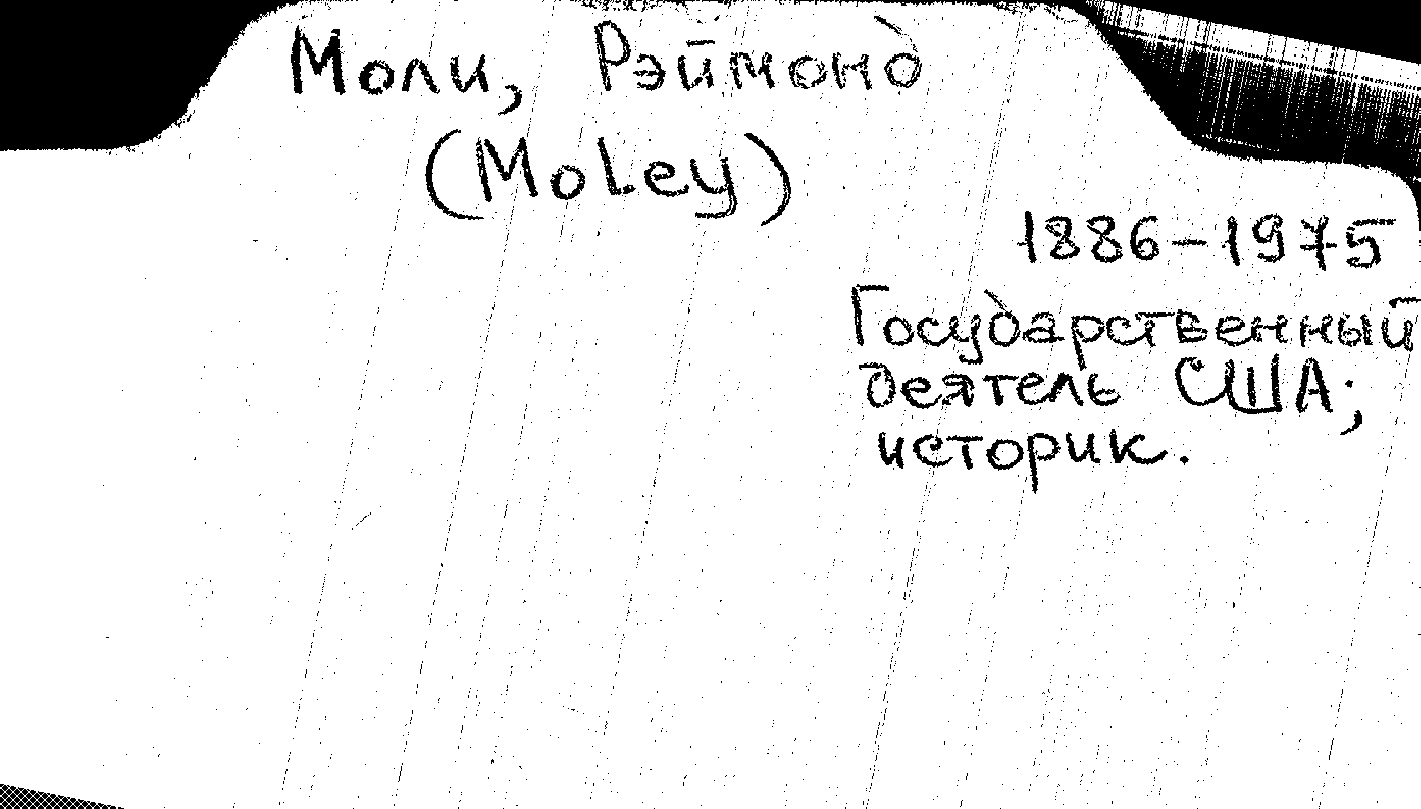 Моли, Рэймонд
(Moley)
1886-1975
Государственный
деятель США;
историк.